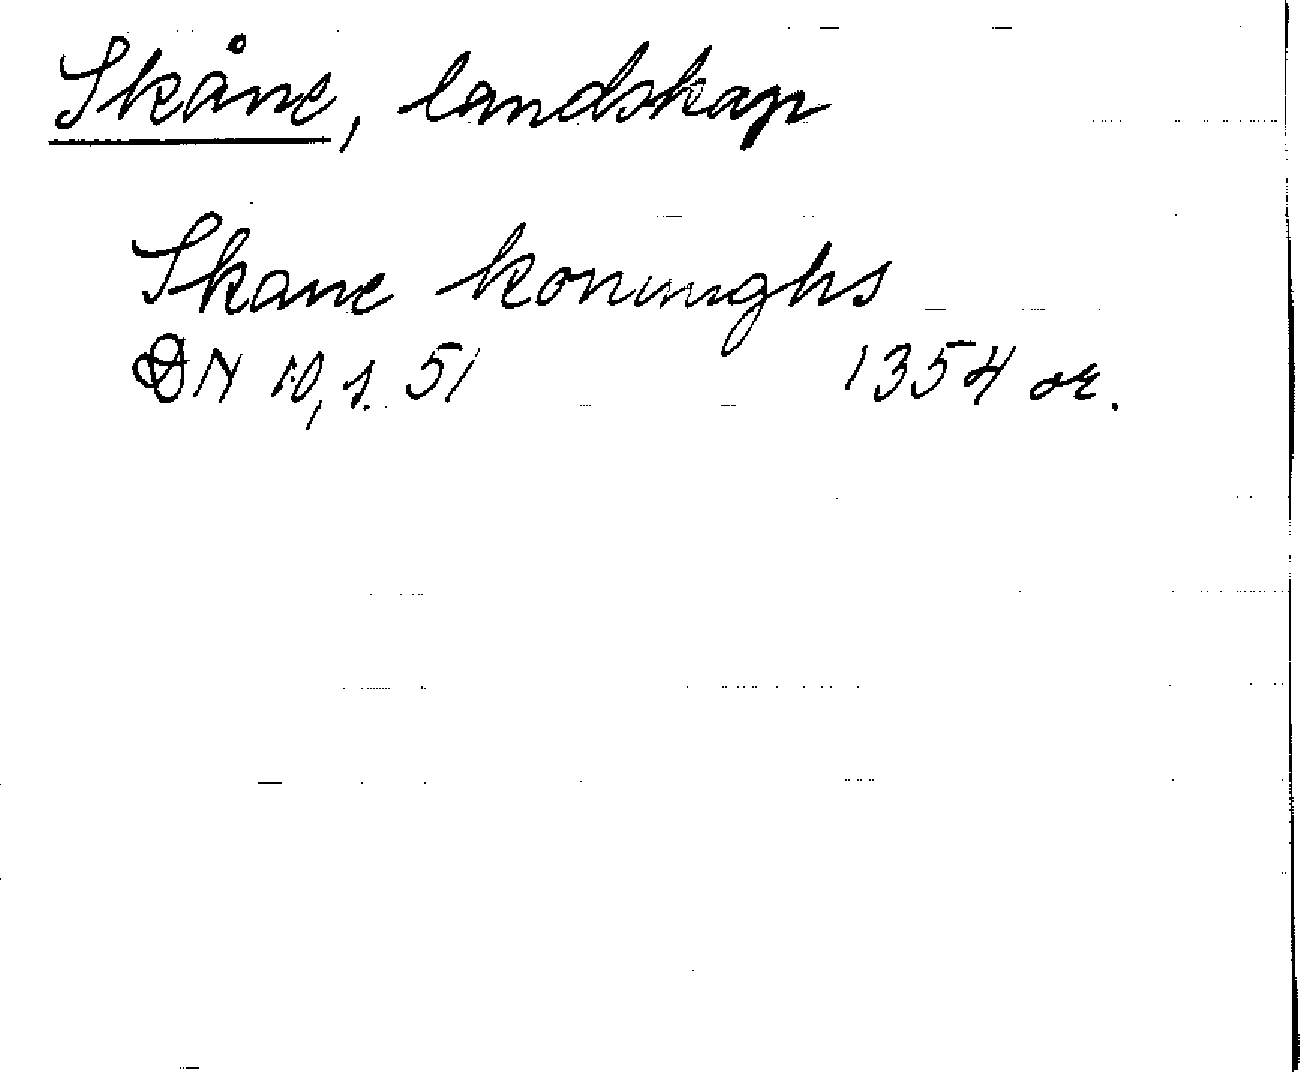 Skåne, landskap
Skane konunghs
DN 10, s. 51 1354 or.